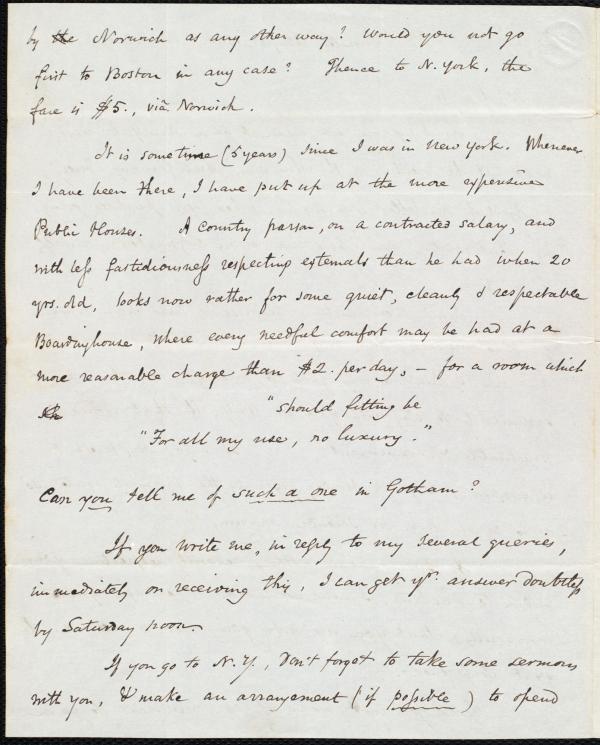 by the Norwich as any other way? Would you not go
first to Boston in any case? Thence to N. York, the
fare is $5., viâ Norwich.
It is sometime (5 years) since I was in New York. Whenever
I have been there, I have put up at the more expensive
Public Houses. A country parson, on a contracted salary, and
with less fastidiousness respecting externals than he had when 20
yrs. old, looks now rather for some quiet, cleanly & respectable
Boardinghouse, where every needful comfort may be had at a
more reasonable charge than $2. per day, – for a room which
sh
"should fitting be
"For all my use, no luxury."
Can you tell me of such a one in Gotham?
If you write me, in reply to my several queries,
immediately on receiving this, I can get yr. answer doubtless
by Saturday noon.
If you go to N.Y., don't forget to take some sermons
with you, & make an arrangement (if possible) to spend